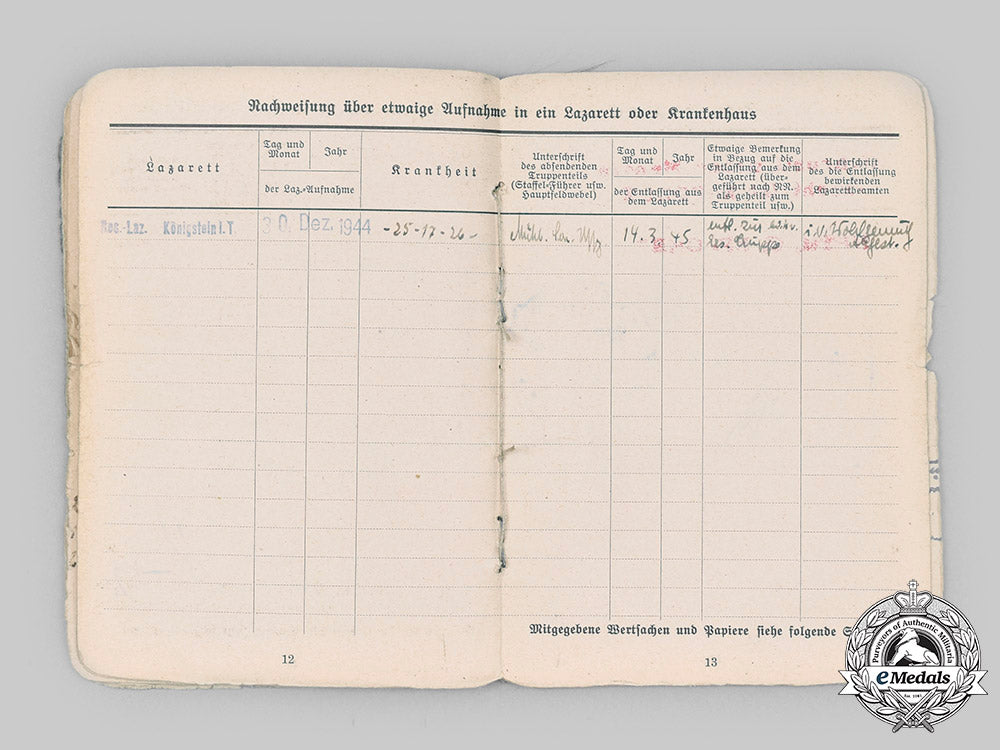 Nachweisung über etwaige Aufnahme in ein Lazarett oder Krankenhaus
Lazarett
Tag und
Monat
Jahr
der Laz.-Aufnahme
Krankheit
Unterschrift
des absendenden
Truppenteils
(Staffel-Führer usw.
Hauptfeldwebel)
Tag und
Monat
Jahr
der Entlassung aus
dem Lazarett
Etwaige Bemerkung
in Bezug auf die
Entlassung aus dem
Lazarett (über-
geführt nach NN.
als geheilt zum
Truppenteil usw.)
Unterschrift
des die Entlassung
bewirkenden
Lazarettbeamten
Res.-Laz. Königstein i. T.
30. Dez. 1944
-25-17-26-
14.3. 45
entl. zur
i.V.
Mitgegebene Wertsachen und Papiere siehe folgende S
12
13
Purveyors of Authentic Militaria
eMedals